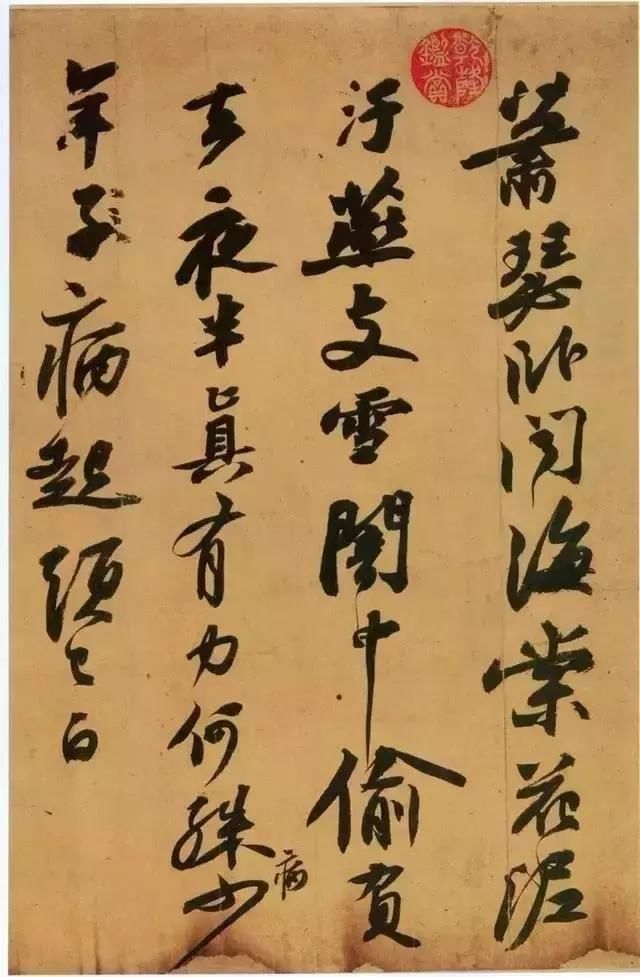 蕭瑟卧聞海棠花泥
汙燕支雪闇中偷負
去夜半眞有力何殊少
病
年子病起頭已白
乾隆鑑賞